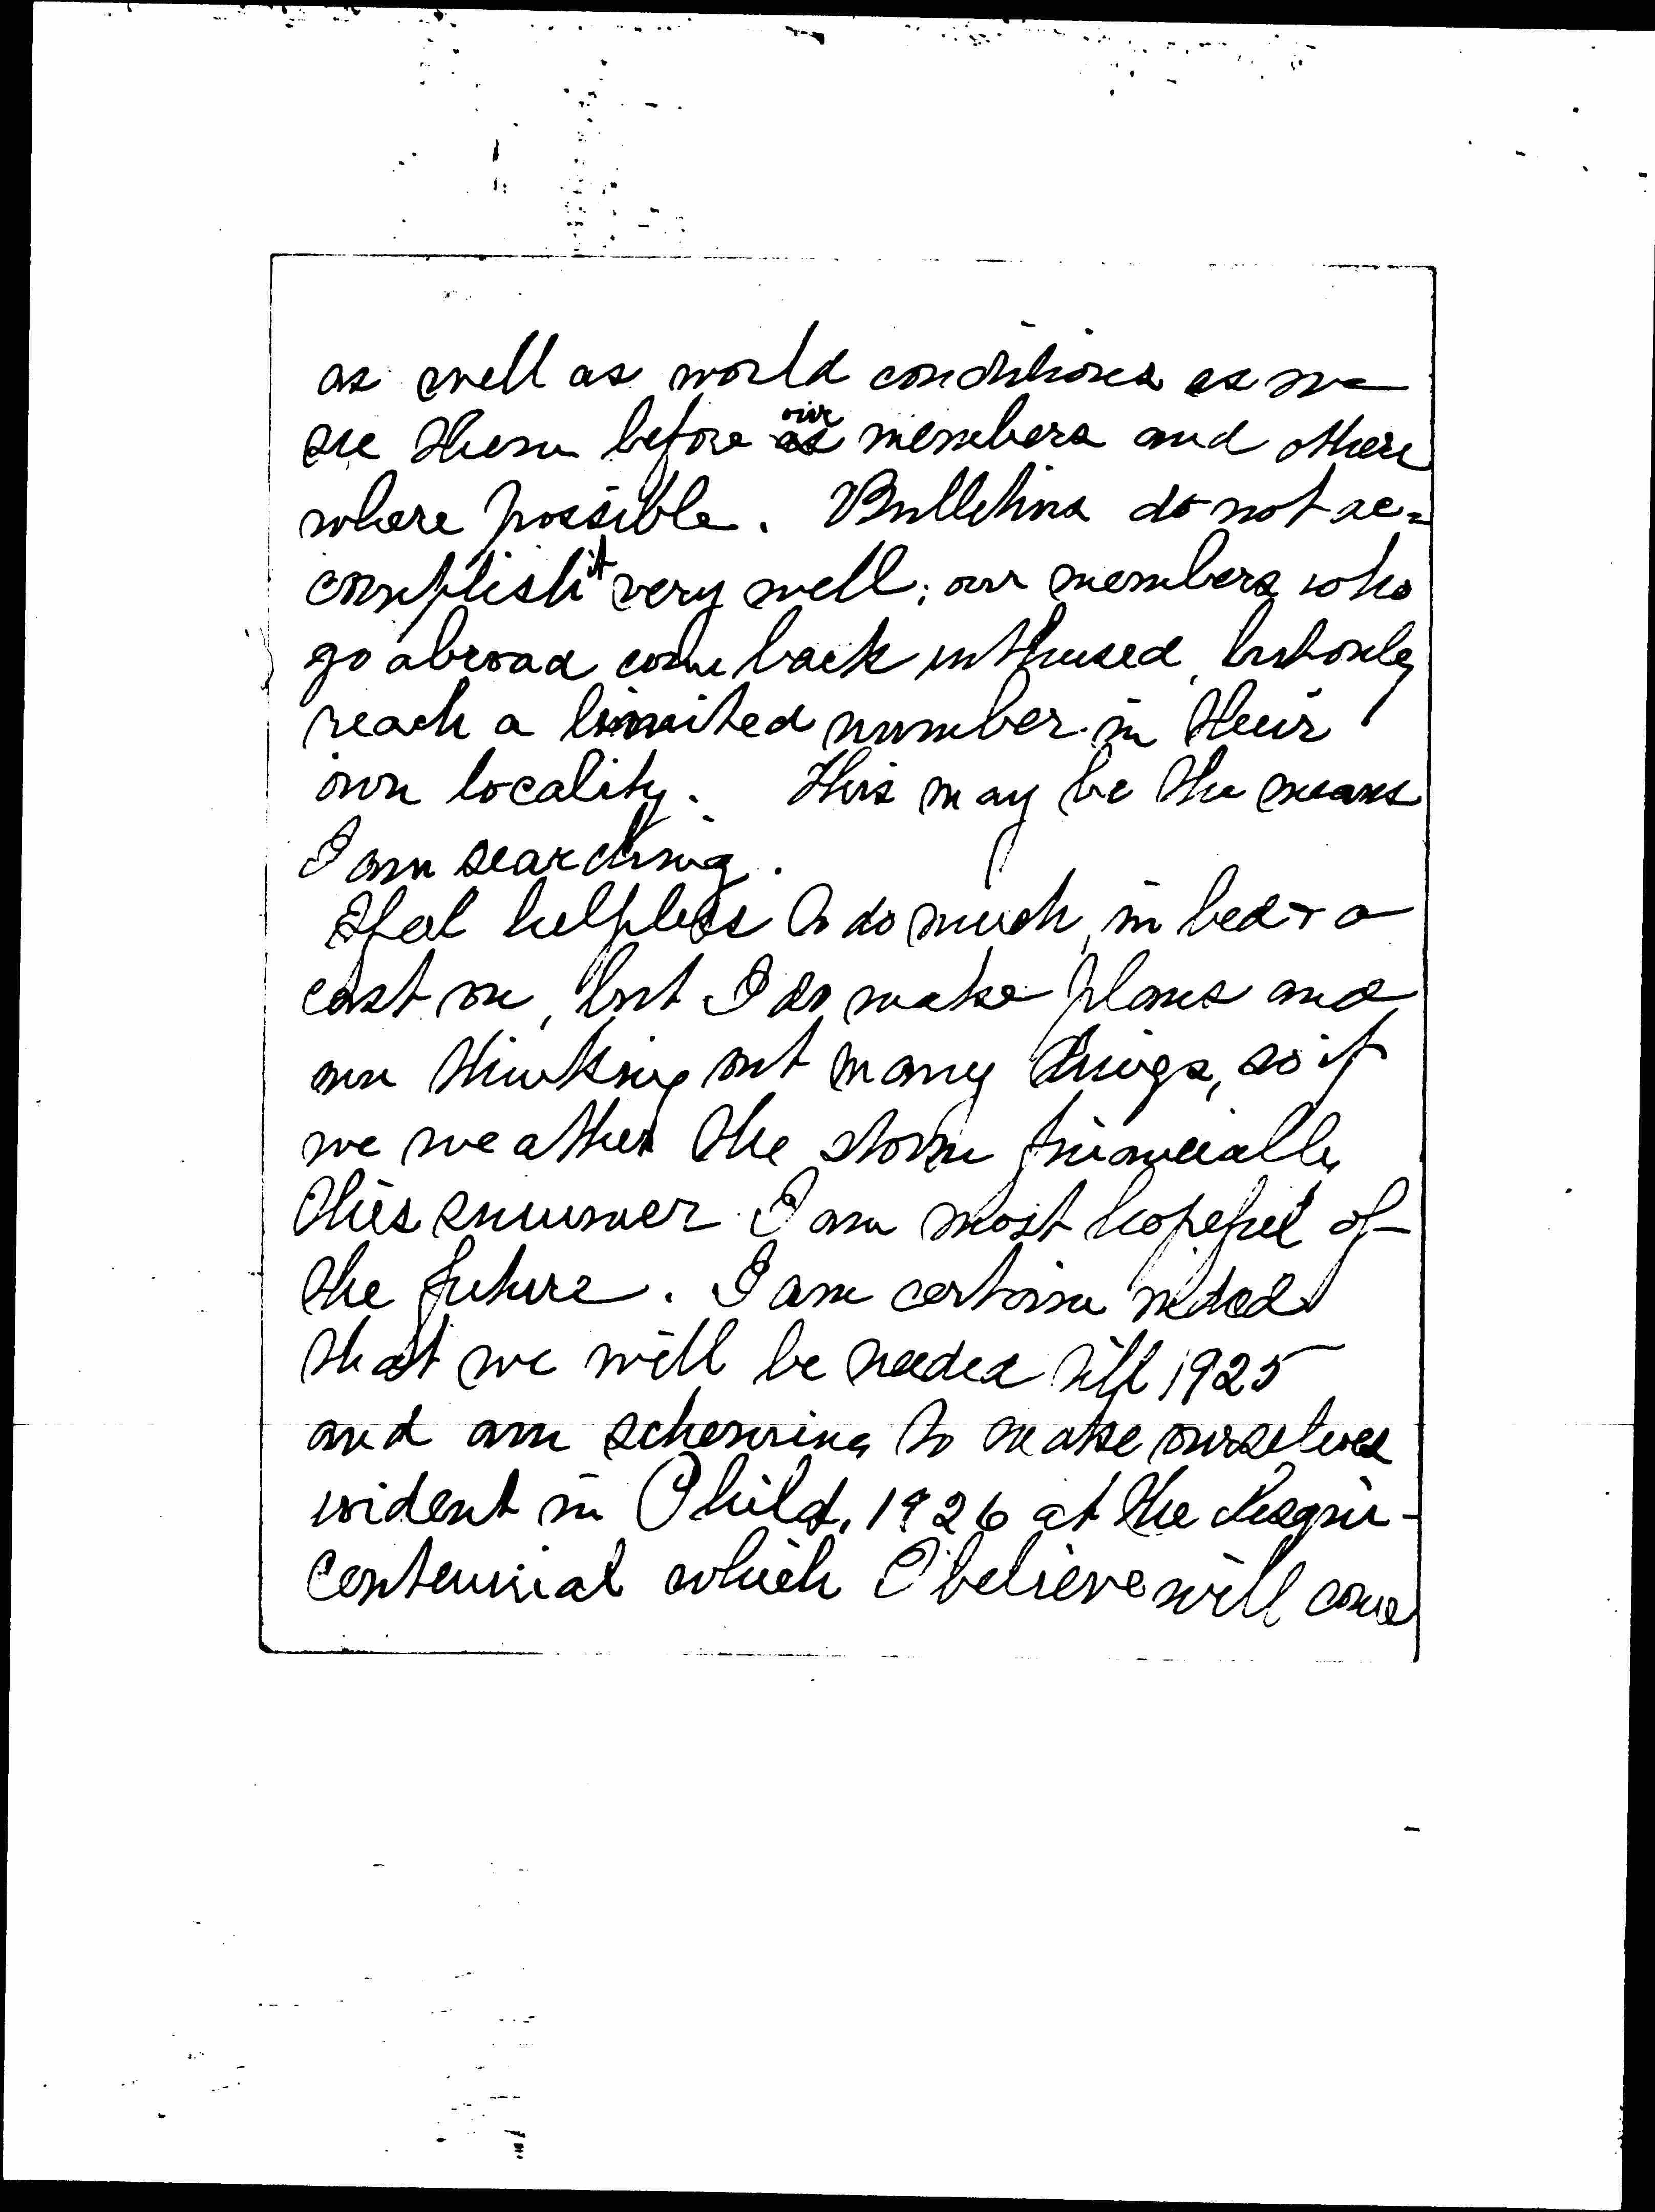 as well as world conditions as we
see them before our members and others
where possible. Bulletins do not ac=
complish it very well; our members who
go abroad come back inthused, but only
reach a limited number in their
own locality. This may be the means
I am searching.
I feel helpless to do much, in bed + a
cast on, but I do make plans and
am thinking out many things, so if
we weather the storm financially
this summer I am most hopeful of
the future. I am certain indeed
that we will be needed till 1925
and am scheming to make ourselves
evident in Phild. 1926 at the Sesqui-
centennial which I believe will come